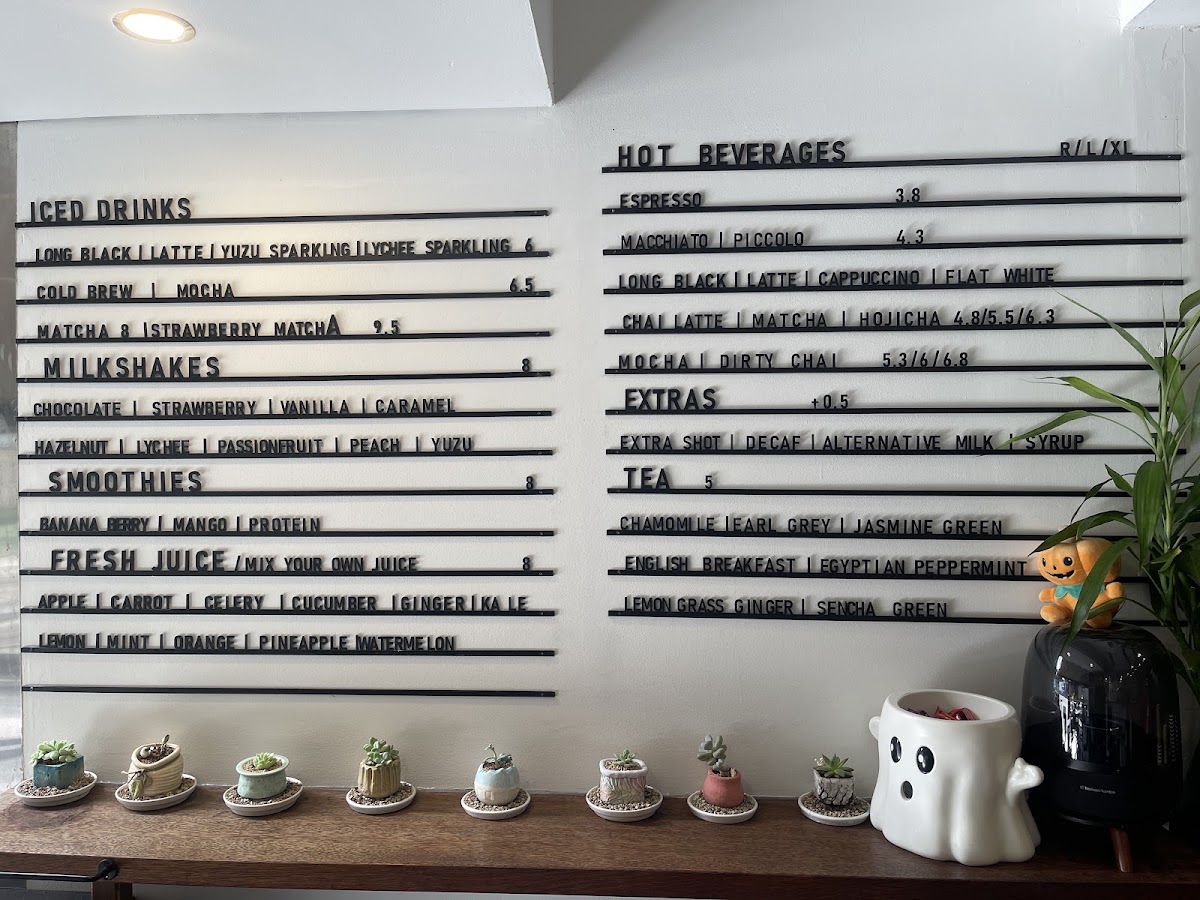 ICED DRINKS
LONG BLACK | LATTE | YUZU SPARKLNG | LYCHEE SPARKLING 6
COLD BREW | MOCHA 6.5
MATCHA 8 | STRAWBERRY MATCHA 9.5
MILKSHAKES 8
CHOCOLATE | STRAWBERRY | VANILLA | CARAMEL
HAZELNUT | LYCHEE | PASSIONFRUIT | PEACH | YUZU
SMOOTHIES 8
BANANA BERRY | MANGO | PROTEIN
FRESH JUICE / MIX YOUR OWN JUICE 8
APPLE | CARROT | CELERY | CUCUMBER | GINGER | KALE
LEMON | MINT | ORANGE | PINEAPPLE | WATERMELON
HOT BEVERAGES R/L/XL
ESPRESSO 3.8
MACCHIATO | PICCOLO 4.3
LONG BLACK | LATTE | CAPPUCCINO | FLAT WHITE
CHAI LATTE | MATCHA | HOJICHA 4.8/5.5/6.3
MOCHA | DIRTY CHAI 5.3/6/6.8
EXTRAS +0.5
EXTRA SHOT | DECAF | ALTERNATIVE MILK | SYRUP
TEA 5
CHAMOMILE | EARL GREY | JASMINE GREEN
ENGLISH BREAKFAST | EGYPTIAN PEPPERMINT
LEMON GRASS GINGER | SENCHA GREEN
harman/kardon